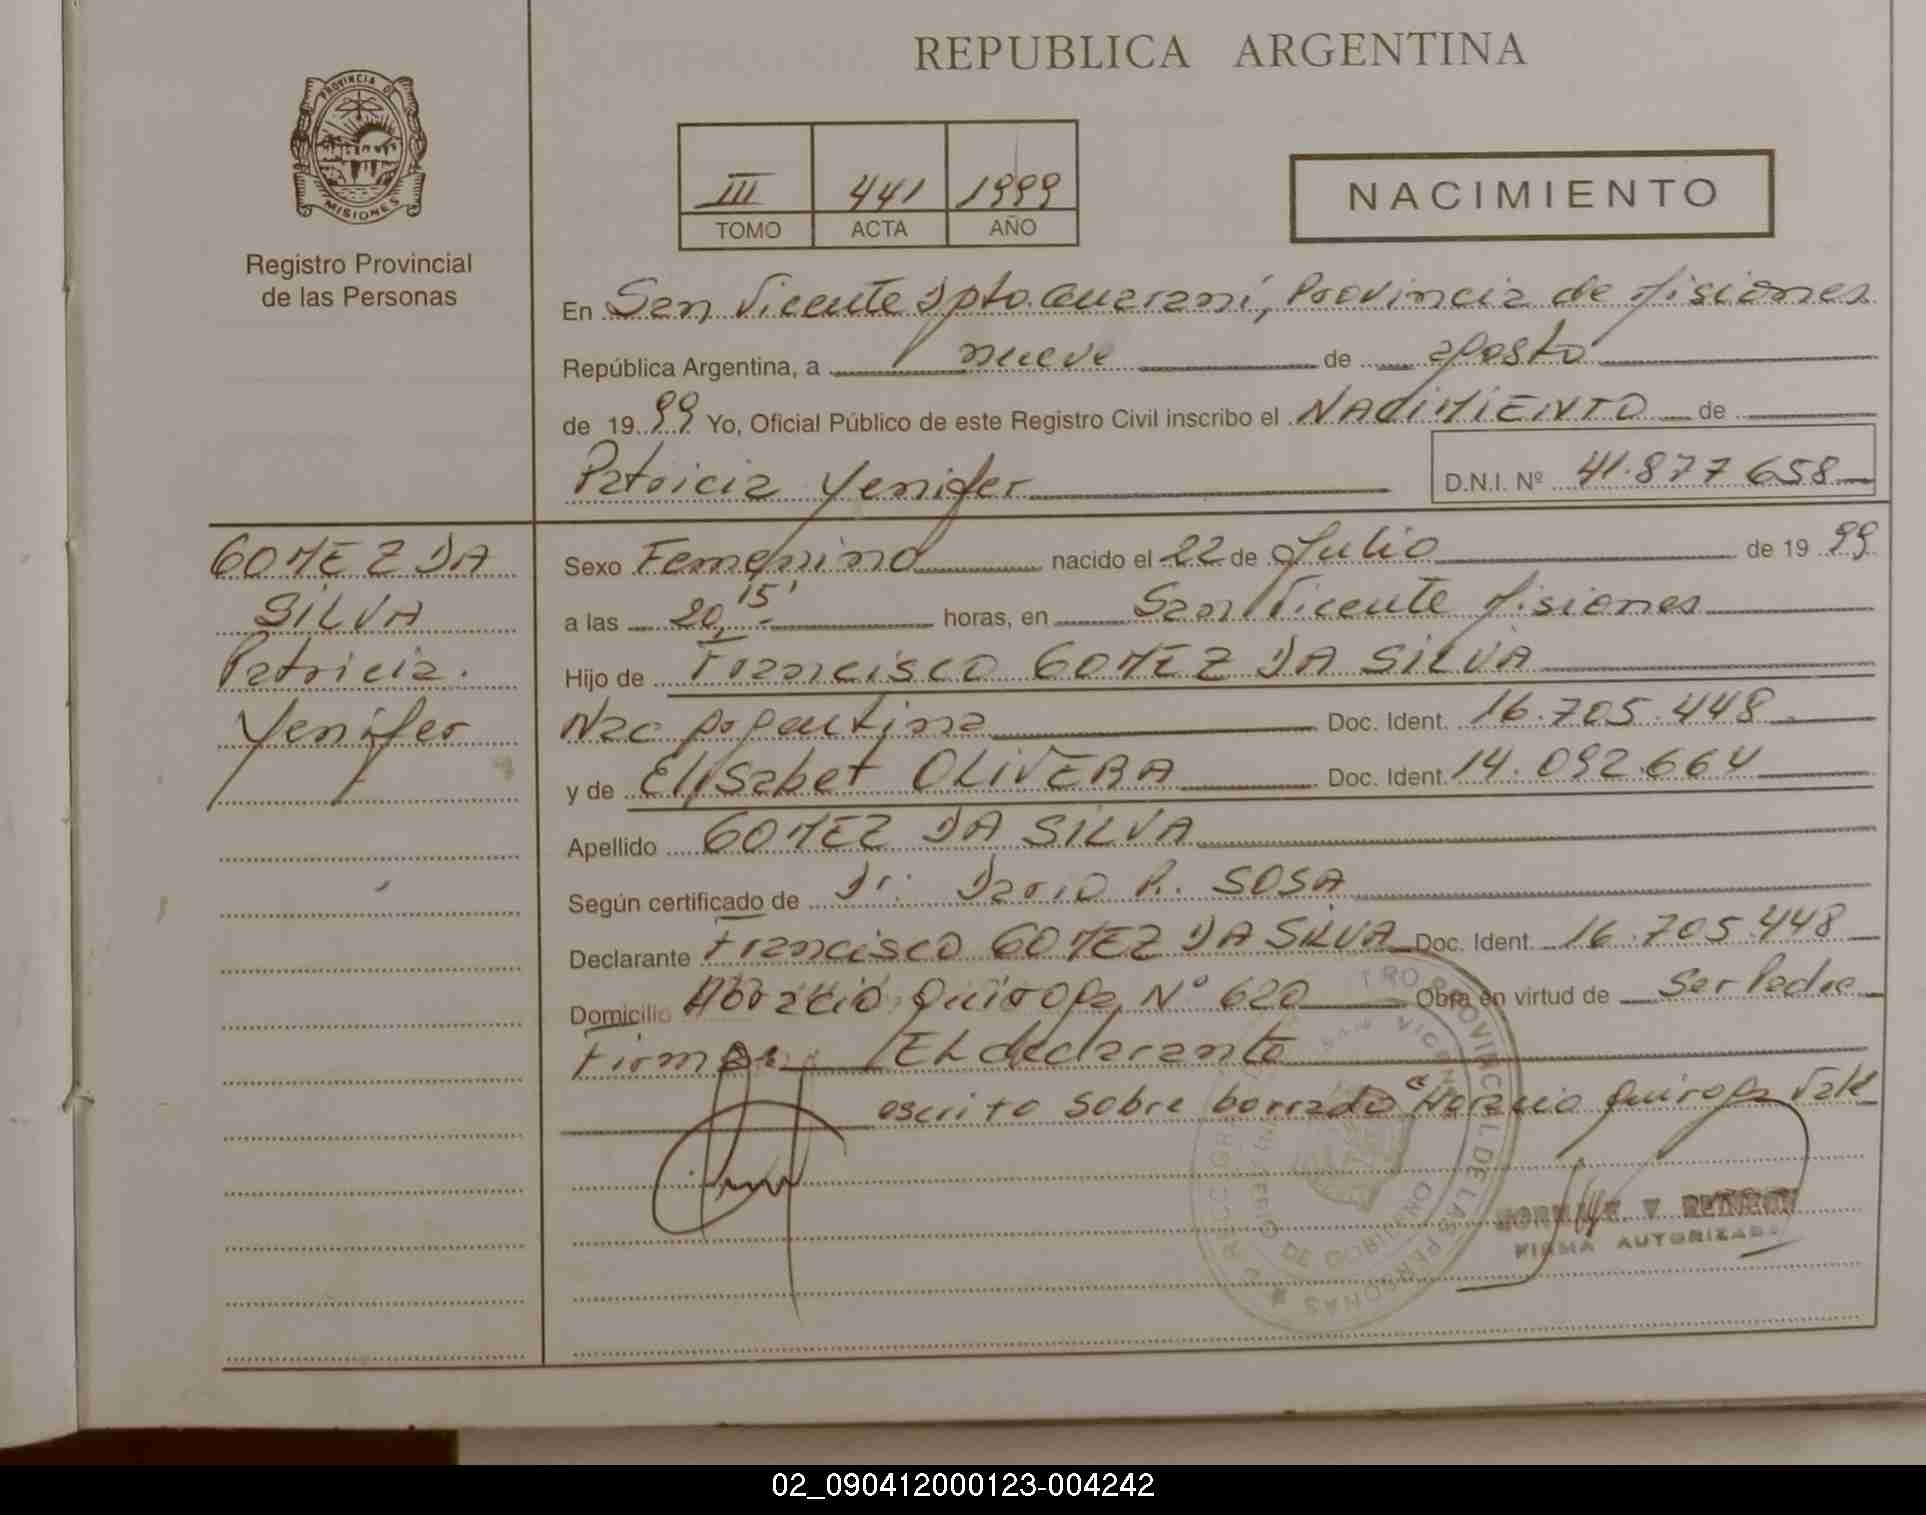 REPUBLICA ARGENTINA
PROVINCIA DE
MISIONES
Registro Provincial
de las Personas
III 441 1999
TOMO ACTA AÑO
NACIMIENTO
En San Vicente Dpto. Guaraní, Provincia de Misiones
República Argentina, a nueve de agosto
de 1999 Yo, Oficial Público de este Registro Civil inscribo el NACIMIENTO de
Patricia Yenifer
D.N.I. Nº 41.877 658
GOMEZ DA
SILVA
Patricia.
Yenifer
Sexo Femenino nacido el 22 de Julio de 1999
a las 20,15' horas, en San Vicente Misiones
Hijo de Francisco GOMEZ DA SILVA
Nac Argentina Doc. Ident. 16.705.448
y de Elisabet OLIVERA Doc. Ident. 14.092.664
Apellido GOMEZ DA SILVA
Según certificado de Dr: Dario R. SOSA
Declarante Francisco GOMEZ DA SILVA Doc. Ident. 16.705.448
Domicilio Horacio Quiroga Nº 620 Obra en virtud de Ser Padre
Firman El declarante
escrito sobre borrado "Horacio Quiroga Vale
FIRMA AUTORIZADA
02_090412000123-004242